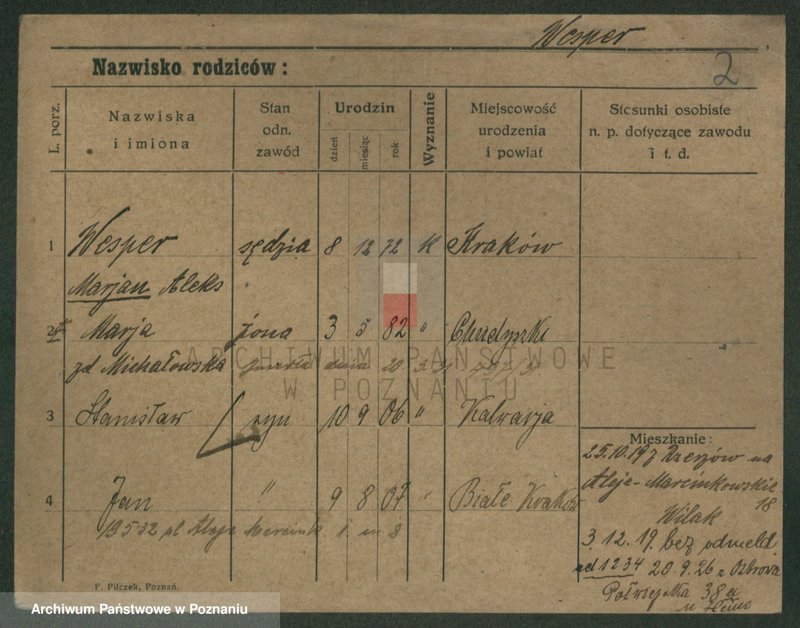 Wesper
2
Nazwisko rodziców:
L. porz.
Nazwiska
i imiona
Stan
odn.
zawód
Urodzin
dzień
miesiąc
rok
Wyznanie
Miejscowość
urodzenia
i powiat
Stosunki osobiste
n. p. dotyczące zawodu
i t. d.
1 Wesper sędzia 8 12 72 K Kraków
Marjan Aleks
2 Marja żona 3 5 82 "
zd Michałowska zmarła dnia 20
ARCHIWUM PAŃSTWOWE
W POZNANIU
3 Stanisław syn 10 9 06 " Kalwarja
Mieszkanie:
25.10.19 z Rzeszów na
Aleje-Marcinkowskie
18
Wilak
4 Jan " 9 8 07 " Białe Kraków
19532 Aleje Marcink. 1. m 8
3.12.19. bez odmeld.
ad 1234 20.9.26 z Ostrowa
Półwiejska 38a
F. Pilczek, Poznań.
Archiwum Państwowe w Poznaniu